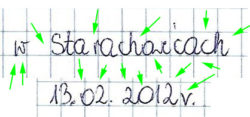 w Starachowicach
13.02.2012r.